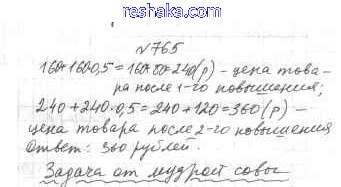 reshaka.com
№765
160+160·0,5=160+80=240(р) - цена това-
ра после 1-го повышения;
240+240·0,5=240+120=360(р) -
цена товара после 2-го повышения
Ответ: 360 рублей.
Задача от мудрой совы